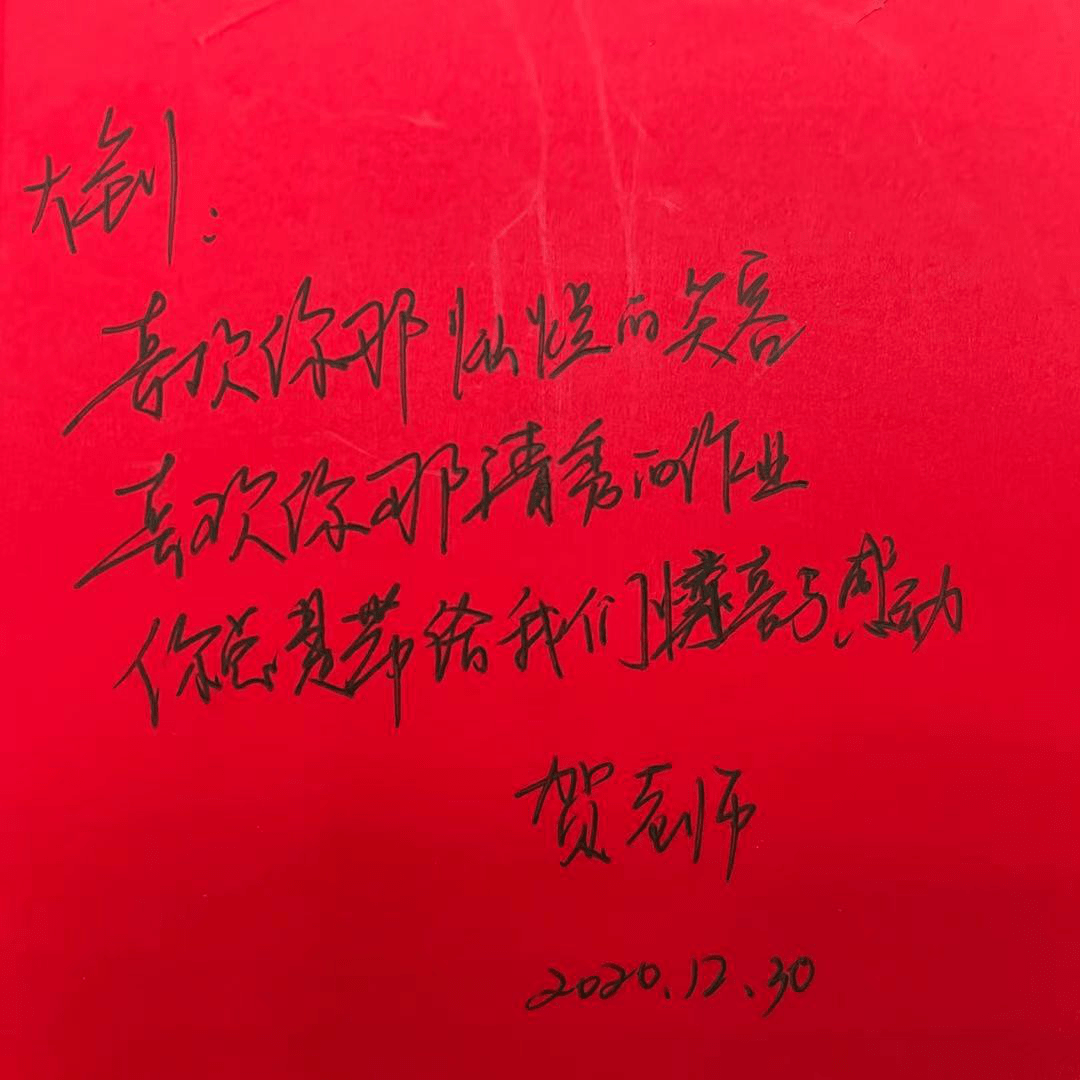 喜欢你那灿烂的笑容
喜欢你那清秀的作业
你总是带给我们惊喜与感动
贺老师
2020.12.30